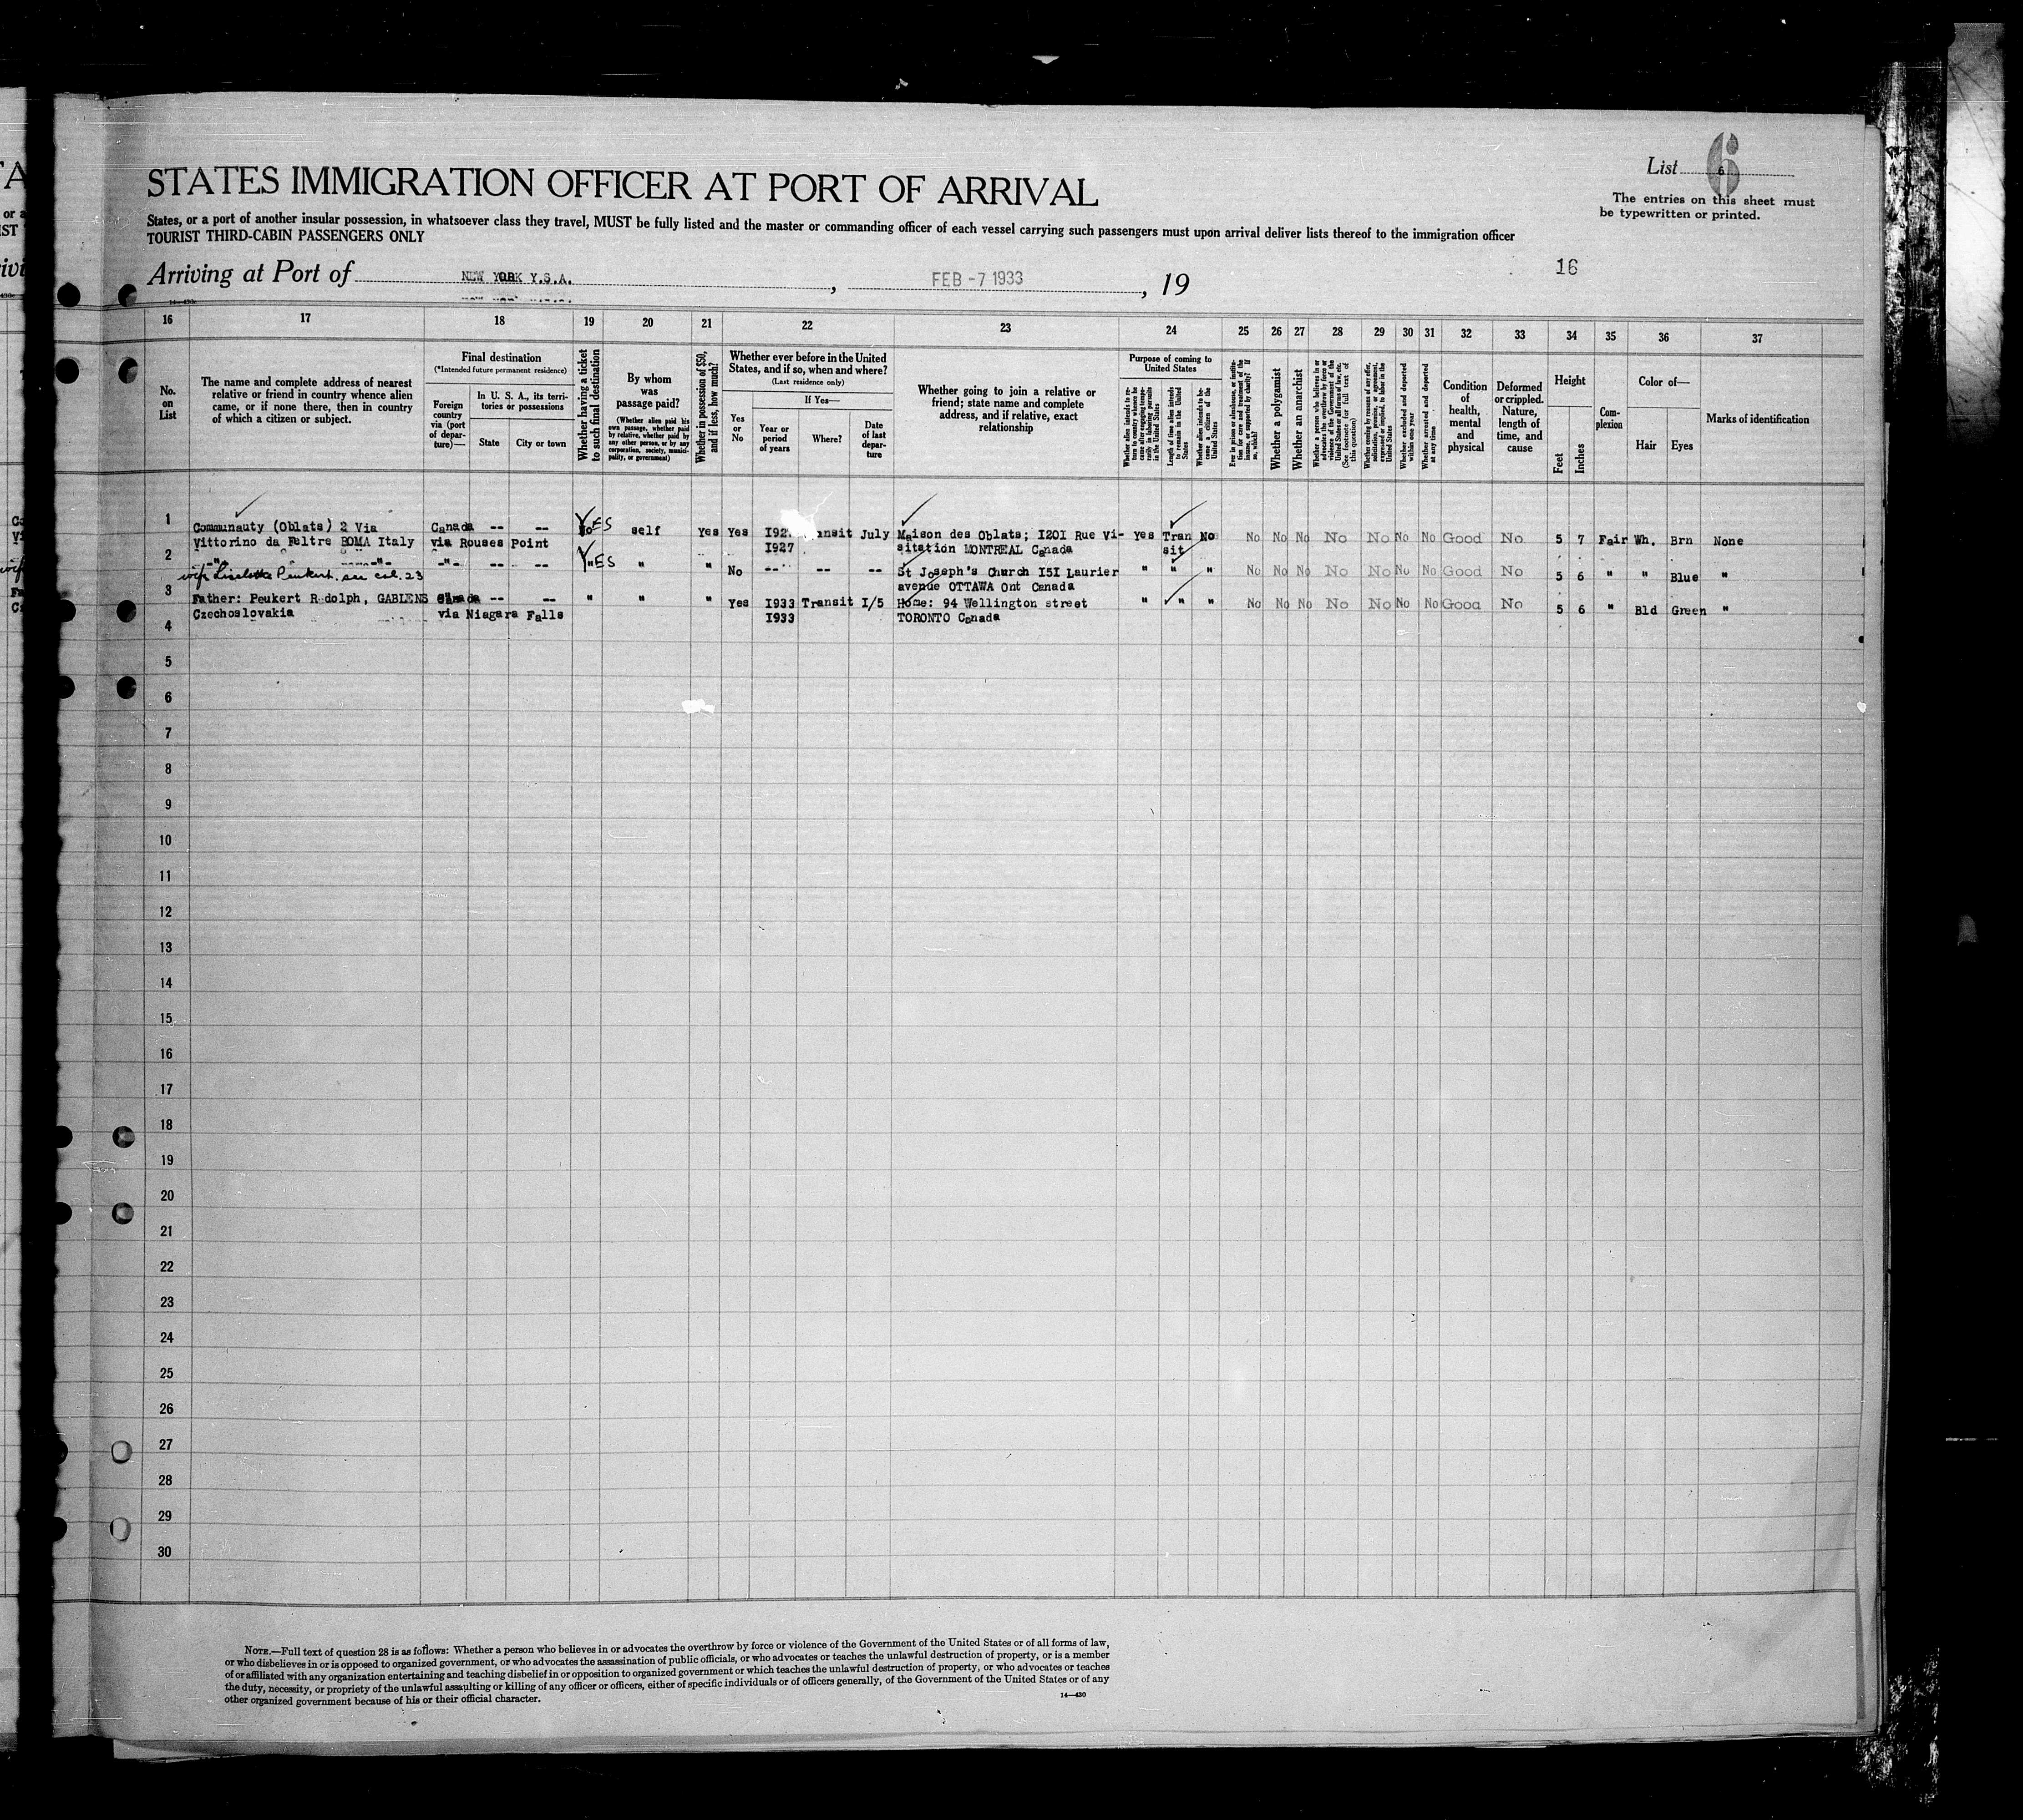 STATES IMMIGRATION OFFICER AT PORT OF ARRIVAL
List 6
6
The entries on this sheet must
be typewritten or printed.
States, or a port of another insular possession, in whatsoever class they travel, MUST be fully listed and the master or commanding officer of each vessel carrying such passengers must upon arrival deliver lists thereof to the immigration officer
TOURIST THIRD-CABIN PASSENGERS ONLY
Arriving at Port of NEW YORK Y.S.A. , FEB -7 1933 , 19
16
16 17 18 19 20 21 22 23 24 25 26 27 28 29 30 31 32 33 34 35 36 37
No.
on
List
The name and complete address of nearest
relative or friend in country whence alien
came, or if none there, then in country
of which a citizen or subject.
Final destination
(*Intended future permanent residence)
Foreign
country
via (port
of depar-
ture)—
In U. S. A., its terri-
tories or possessions
State
City or town
Whether having a ticket
to such final destination
By whom
was
passage paid?
(Whether alien paid his
own passage, whether paid
by relative, whether paid by
any other person, or by any
corporation, society, munici-
pality, or government)
Whether in possession of $50,
and if less, how much?
Whether ever before in the United
States, and if so, when and where?
(Last residence only)
Yes
or
No
If Yes—
Year or
period
of years
Where?
Date
of last
depar-
ture
Whether going to join a relative or
friend; state name and complete
address, and if relative, exact
relationship
Purpose of coming to
United States
Whether alien intends to re-
turn to country whence he
came after engaging tempo-
rarily in laboring pursuits
in the United States
Length of time alien intends
to remain in the United
States
Whether alien intends to be-
come a citizen of the
United States
Ever in prison or almshouse, or institu-
tion for care and treatment of the
insane, or supported by charity? If
so, which?
Whether a polygamist
Whether an anarchist
Whether a person who believes in or
advocates the overthrow by force or
violence of the Government of the
United States or all forms of law, etc.
(See footnote for full text of
this question)
Whether coming by reason of any offer,
solicitation, promise, or agreement,
expressed or implied, to labor in the
United States
Whether ever excluded and deported
within one year
Whether arrested and deported
at any time
Condition
of
health,
mental
and
physical
Deformed
or crippled.
Nature,
length of
time, and
cause
Height
Feet
Inches
Com-
plexion
Color of—
Hair
Eyes
Marks of identification
1 Communauty (Oblats) 2 Via Canada -- -- YES self Yes Yes Transit July Maison des Oblats; I20I Rue Vi- yes Tran No No No No No No No No Good No 5 7 Fair Wh. Brn None
Vittorino da Feltre ROMA Italy via Rouses Point I927 sitation MONTREAL Canada sit
2 -"- -"- -"- -- -- YES " " No -- -- -- St Joseph's Church I5I Laurier " " " No No No No No No No Good No 5 6 " " Blue "
wife Liselotte Peukert. see col. 23 avenue OTTAWA Ont Canada
3 Father: Peukert Rudolph, GABLENS Canada -- -- " " " Yes I933 Transit I/5 Home: 94 Wellington street " " " No No No No No No No Good No 5 6 " Bld Green "
Czechoslovakia via Niagara Falls I933 TORONTO Canada
4
5
6
7
8
9
10
11
12
13
14
15
16
17
18
19
20
21
22
23
24
25
26
27
28
29
30
NOTE.—Full text of question 28 is as follows: Whether a person who believes in or advocates the overthrow by force or violence of the Government of the United States or of all forms of law,
or who disbelieves in or is opposed to organized government, or who advocates the assassination of public officials, or who advocates or teaches the unlawful destruction of property, or is a member
of or affiliated with any organization entertaining and teaching disbelief in or opposition to organized government or which teaches the unlawful destruction of property, or who advocates or teaches
the duty, necessity, or propriety of the unlawful assaulting or killing of any officer or officers, either of specific individuals or of officers generally, of the Government of the United States or of any
other organized government because of his or their official character.
14—430